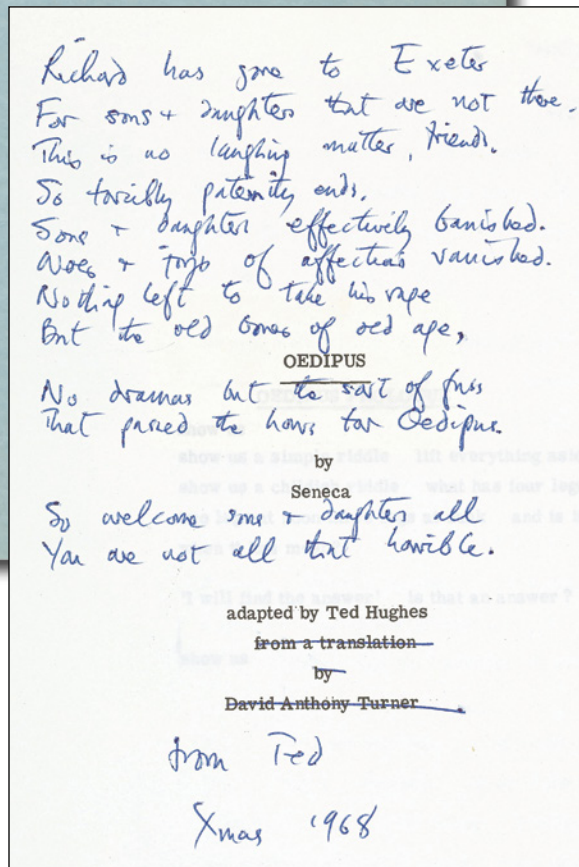 Richard has gone to Exeter
For sons + daughters that are not there.
This is no laughing matter, friends.
So forcibly paternity ends.
Sons + daughters effectively banished.
Woes + joys of affections vanished.
Nothing left to take his rage
But the old bones of old age,
OEDIPUS
No dramas but the sort of fuss
That passed the hours for Oedipus.
by
Seneca
So welcome sons + daughters all
You are not all that horrible.
adapted by Ted Hughes
from a translation
by
David Anthony Turner
from Ted
Xmas 1968